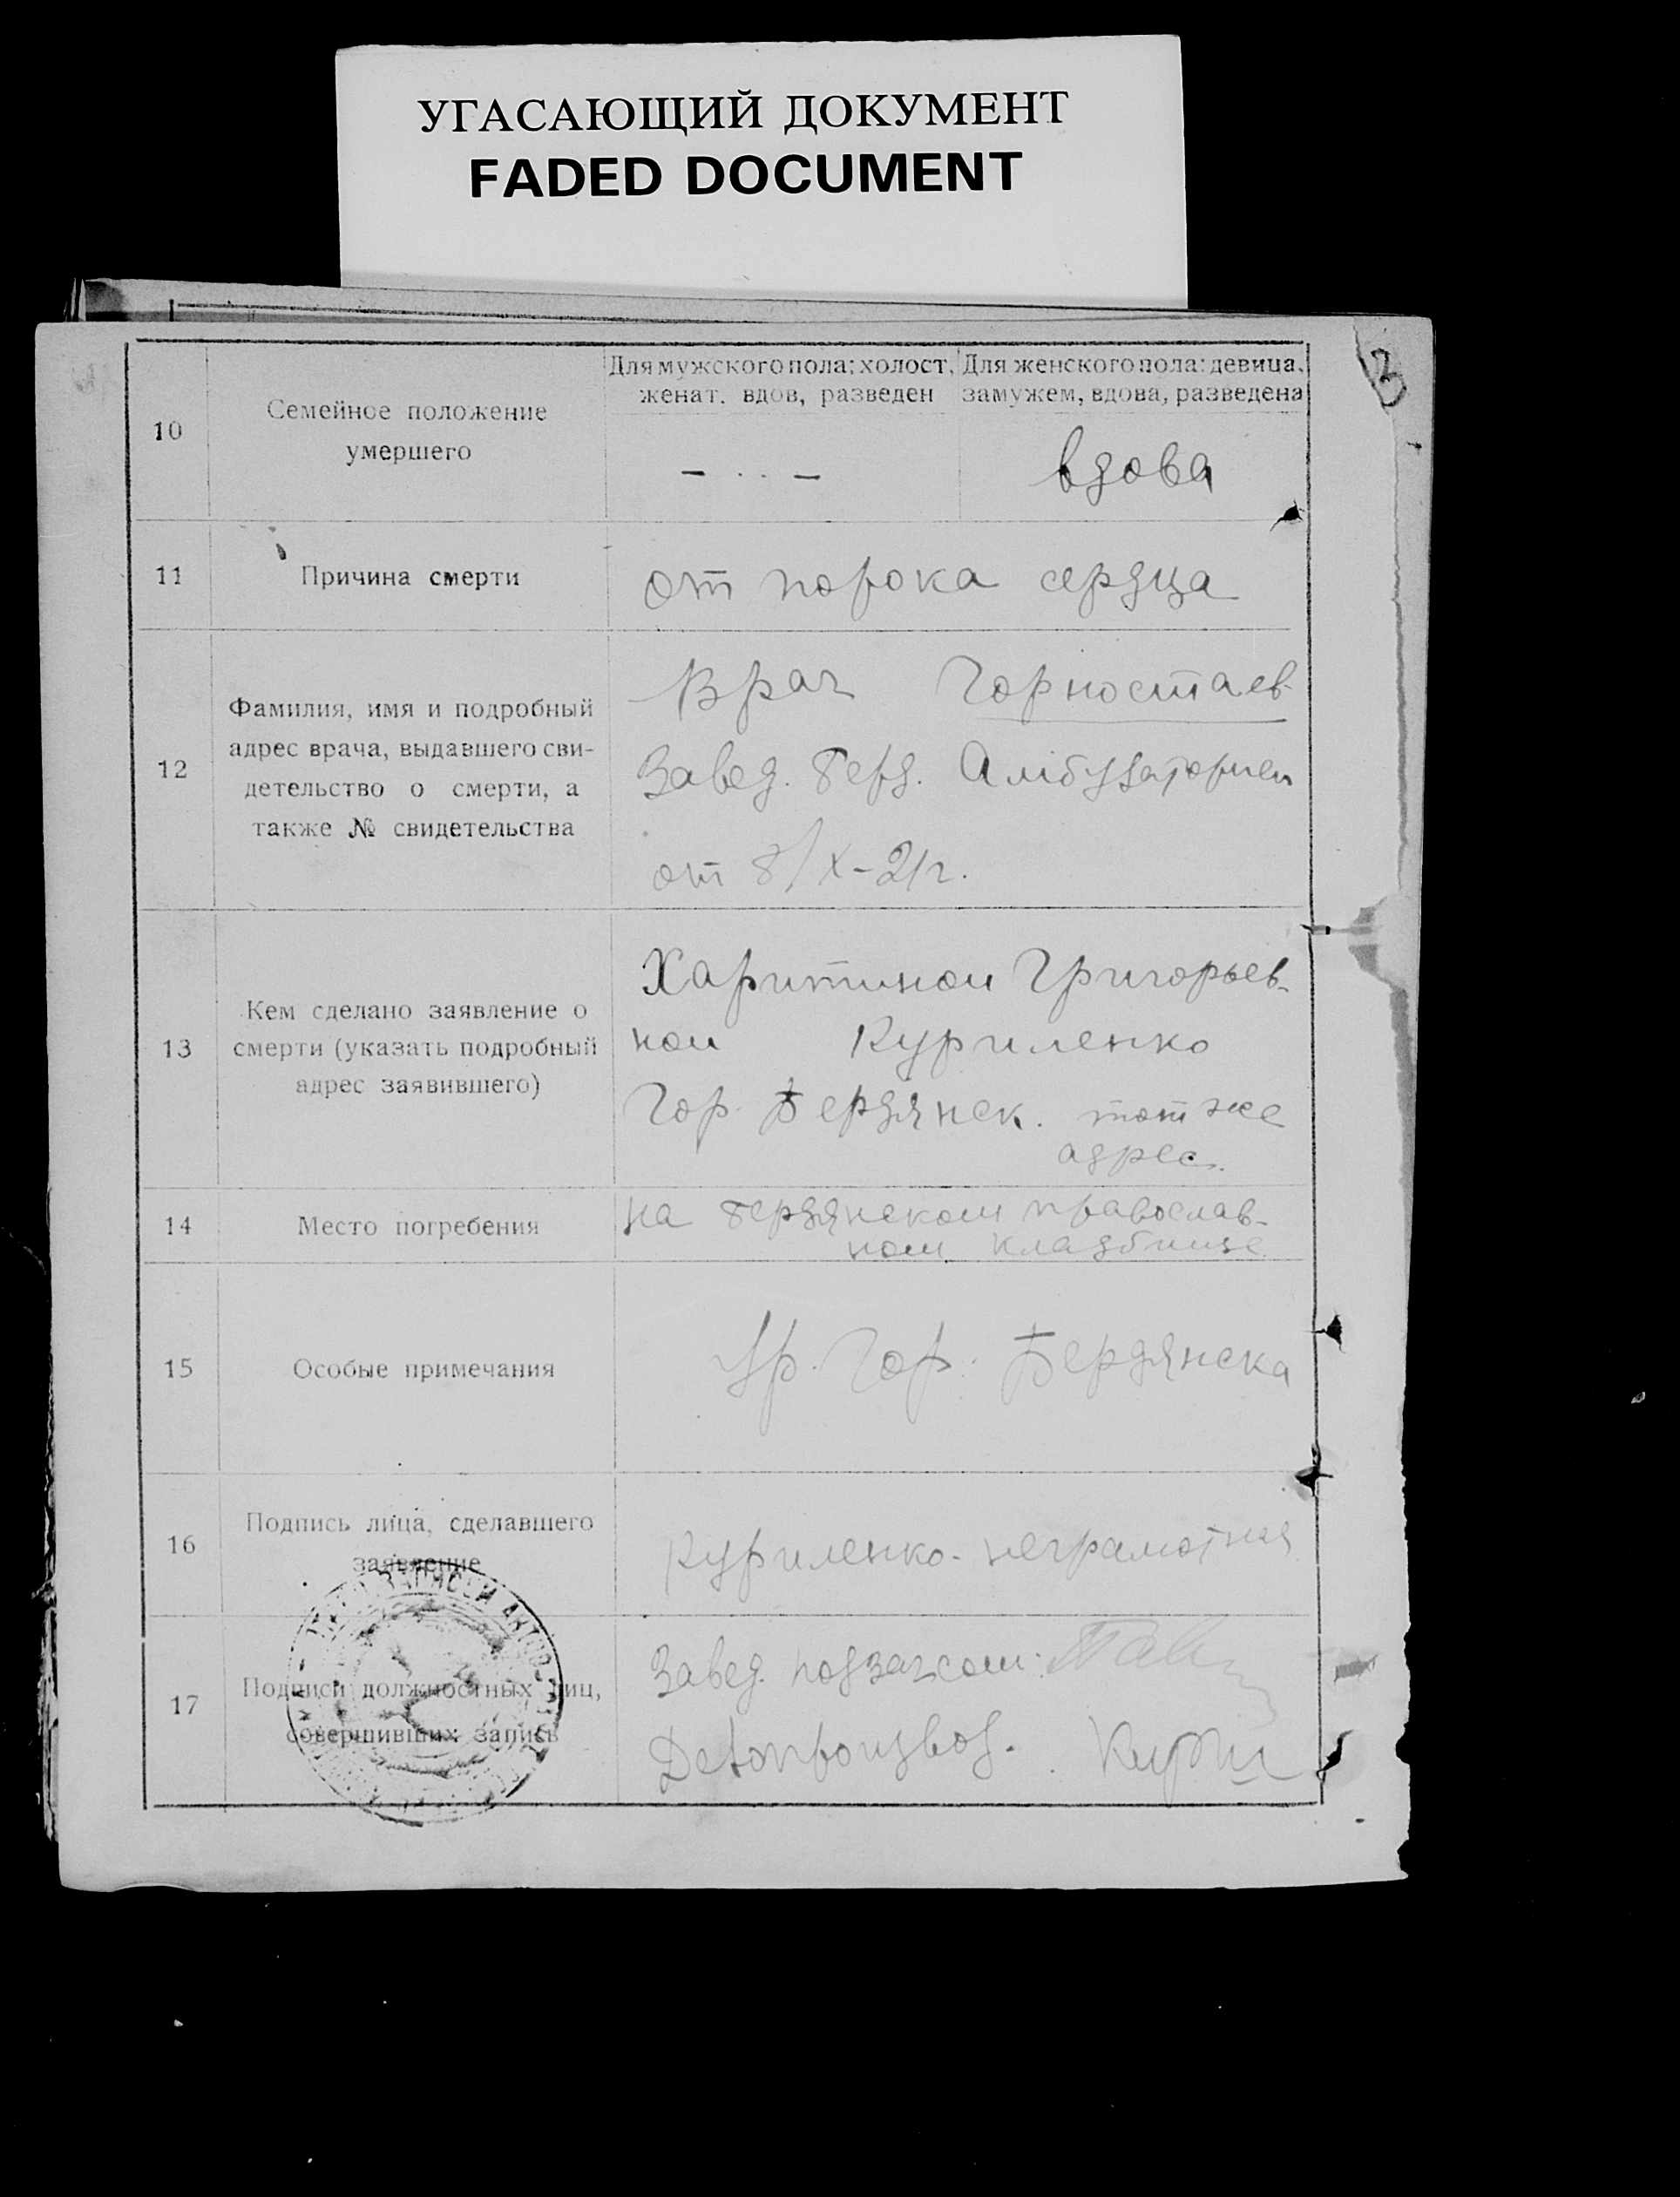 УГАСАЮЩИЙ ДОКУМЕНТ
FADED DOCUMENT
3
10
Семейное положение
умершего
Для мужского пола: холост,
женат, вдов, разведен
Для женского пола: девица,
замужем, вдова, разведена
вдова
11
Причина смерти
от порока сердца
12
Фамилия, имя и подробный
адрес врача, выдавшего сви-
детельство о смерти, а
также № свидетельства
Врач Горностаев
Завед. Берд. Амбулаторией
от 8/X-21г.
13
Кем сделано заявление о
смерти (указать подробный
адрес заявившего)
Харитиной Григорьев-
ной Куриленко
Гор. Бердянск. тот же
адрес.
14
Место погребения
на бердянском православ-
ном кладбище
15
Особые примечания
Гор. Бердянска
16
Подпись лица, сделавшего
заявление
Куриленко-неграмотная
17
Подписи должностных лиц,
совершивших запись
ЗАПИСЕЙ АКТОВ
Завед. подзагсом:
Делопроизвод.